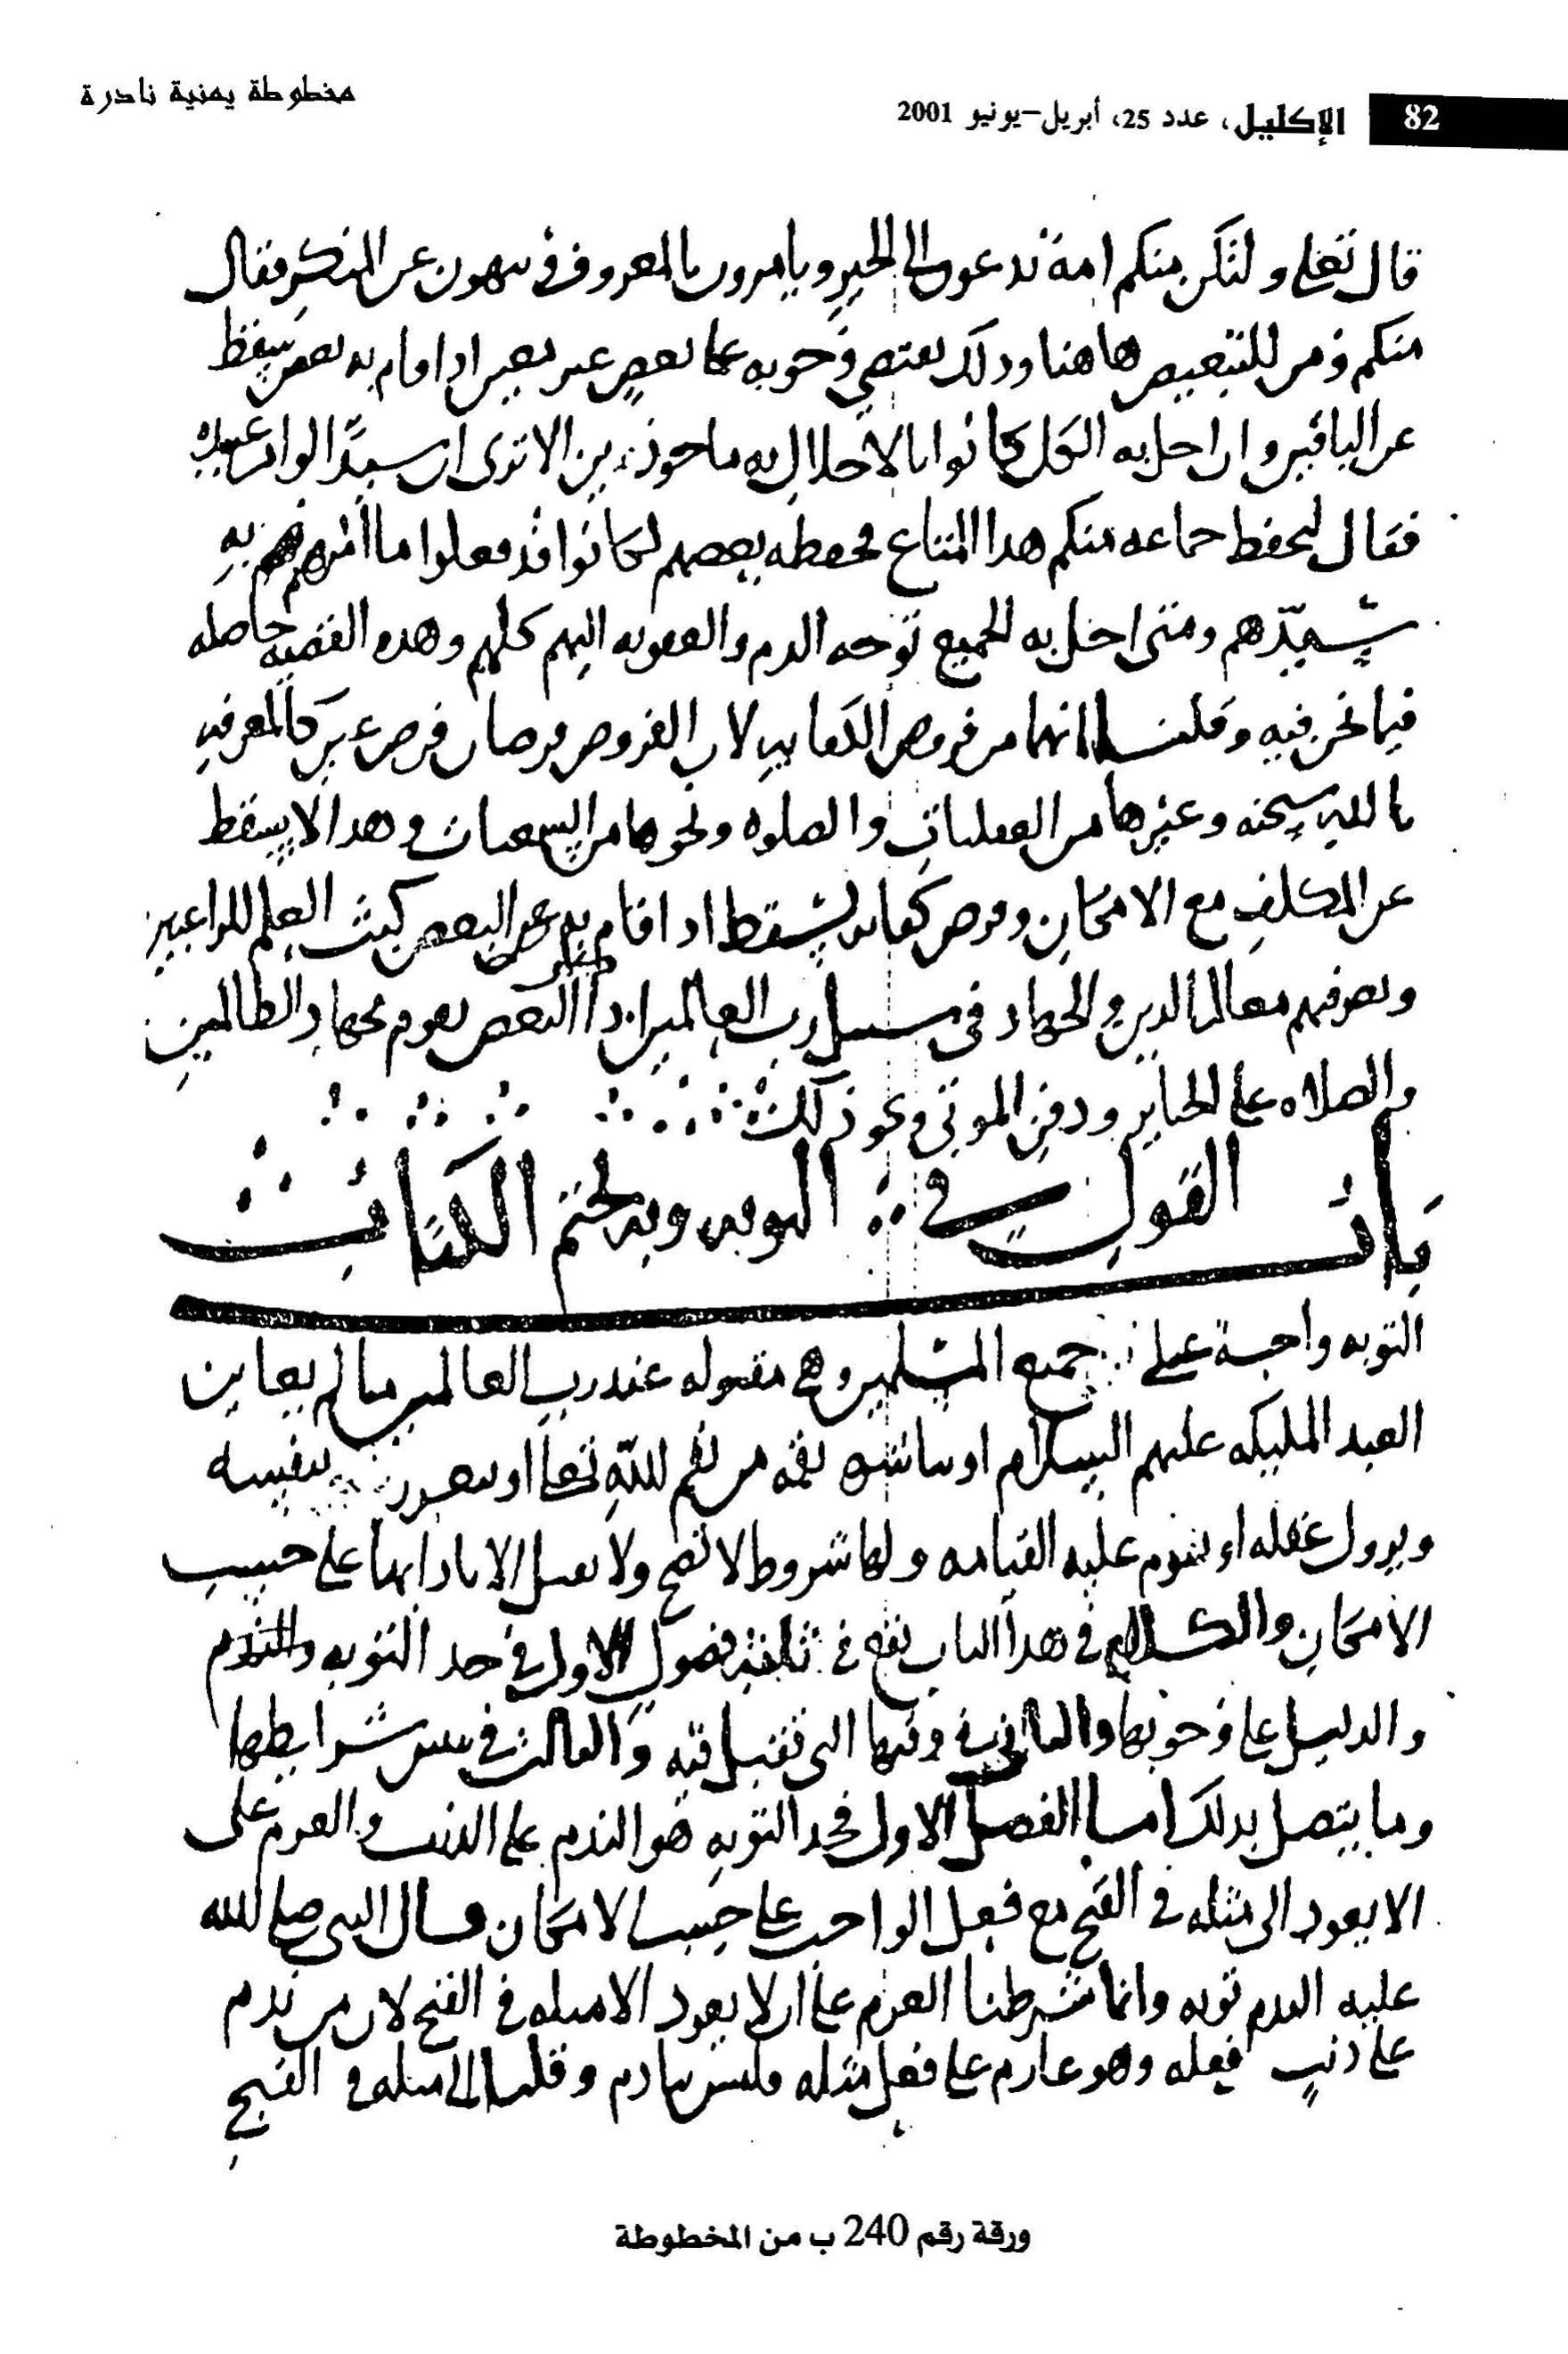 مخطوطة يمنية نادرة
82 الإكليل، عدد 25، أبريل-يونيو 2001
قال تعلى ولتكن منكم امة يدعون الى الخير ويامرون بالمعروف وينهون عن المنكر فقال
منكم ومن للتبعيض هاهنا وذلك يقتضي وجوبه على بعض غير معين اذا قام به بعض سقط
عن الباقين وان اخل به الكل كانوا بالاخلال به ماخوذين الا ترى ان سيدا لو امر عبيده
فقال ليحفظ جماعه منكم هذا المتاع فحفظه بعضهم لكانوا قد فعلوا ما امرهم به
سيدهم ومتى اخل به الجميع توجه الذم والعقوبه اليهم كلهم وهذه القضيه حاصله
فيما نحن فيه وقلنا انهما من فروض الكفايه لان الفروض فرضان فرض عين كالمعرفه
بالله سبحنه وغيرها من العقليات والصلوه ونحوها من السمعيات وهذا لا يسقط
عن المكلف مع الامكان وفرض كفايه يسقط اذا قام به البعض عن البعض كبث العلم للراغبين
وتعريفهم معالم الدين والجهاد في سبيل رب العالمين اذا البعض يقوم بجهاد الظالمين
والصلاه على الجنايز ودفن الموتى ونحو ذلك
باب القول في التوبه وبه نختم الكتاب
التوبه واجبة على جميع المسلمين وهي مقبوله عند رب العالمين ما لم يعاين
العبد المليكه عليهم السلام او يباشره نقمه من نقم الله تعلى او يغرر بنفسه
ويزول عقله او تقوم عليه القيامه ولها شروط لا تصح ولا تقبل الا بادايها على حسب
الامكان والكلام في هذا الباب يقع في ثلثة فصول الاول في حد التوبه والندم
والدليل على وجوبها والثاني في وقتها التي تقبل فيه والثالث في بيان شرايطها
وما يتصل بذلك اما الفصل الاول فحد التوبه هو الندم على الذنب والعزم على
الا يعود الى مثله في القبح مع فعل الواجب على حسب الامكان قال النبي صلى الله
عليه الندم توبه وانما شرطنا العزم على ان لا يعود الى مثله في القبح لان من ندم
على ذنب فعله وهو عازم على فعل مثله فليس بنادم وقلنا الى مثله في القبح
ورقة رقم 240 ب من المخطوطة